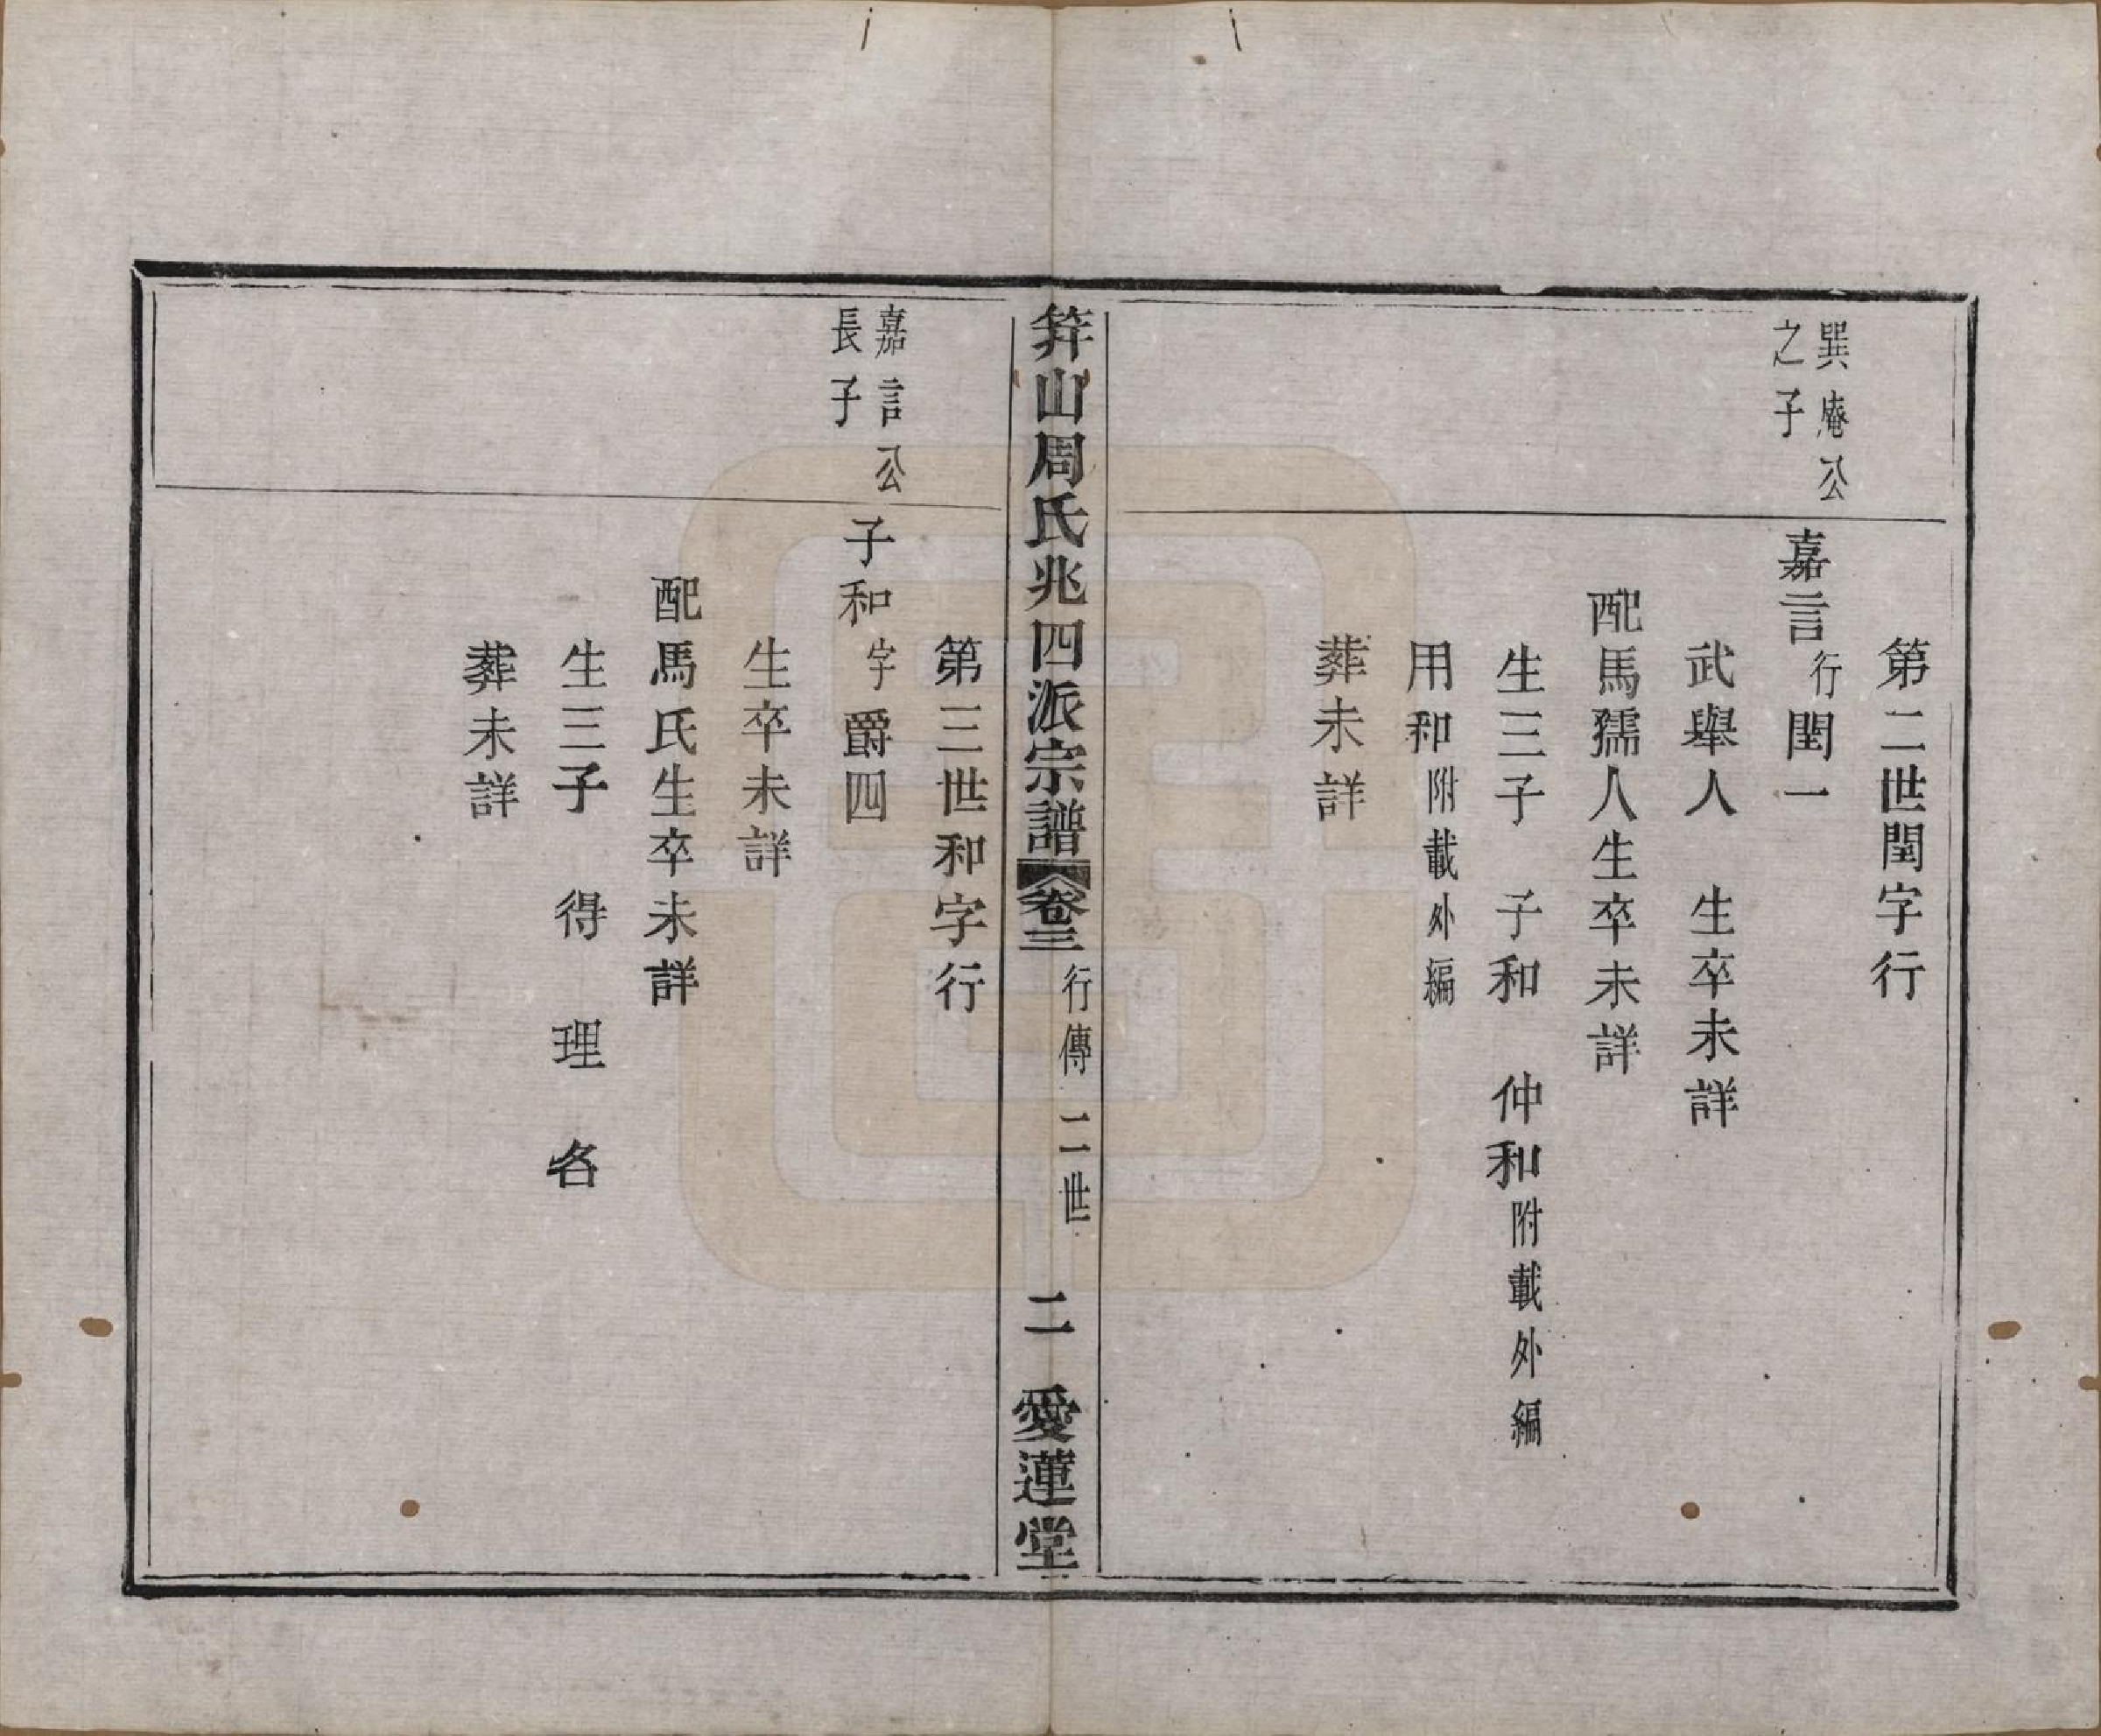 第二世閏字行
巽庵公
之子
嘉言行閏一
武舉人　生卒未詳
配馬孺人生卒未詳
生三子　子和　仲和附載外編
用和附載外編
葬未詳
筓山周氏兆四派宗譜
卷三
行傳　二世
二
愛蓮堂
第三世和字行
嘉言公
長子
子和字爵四
生卒未詳
配馬氏生卒未詳
生三子　得　理　名
葬未詳